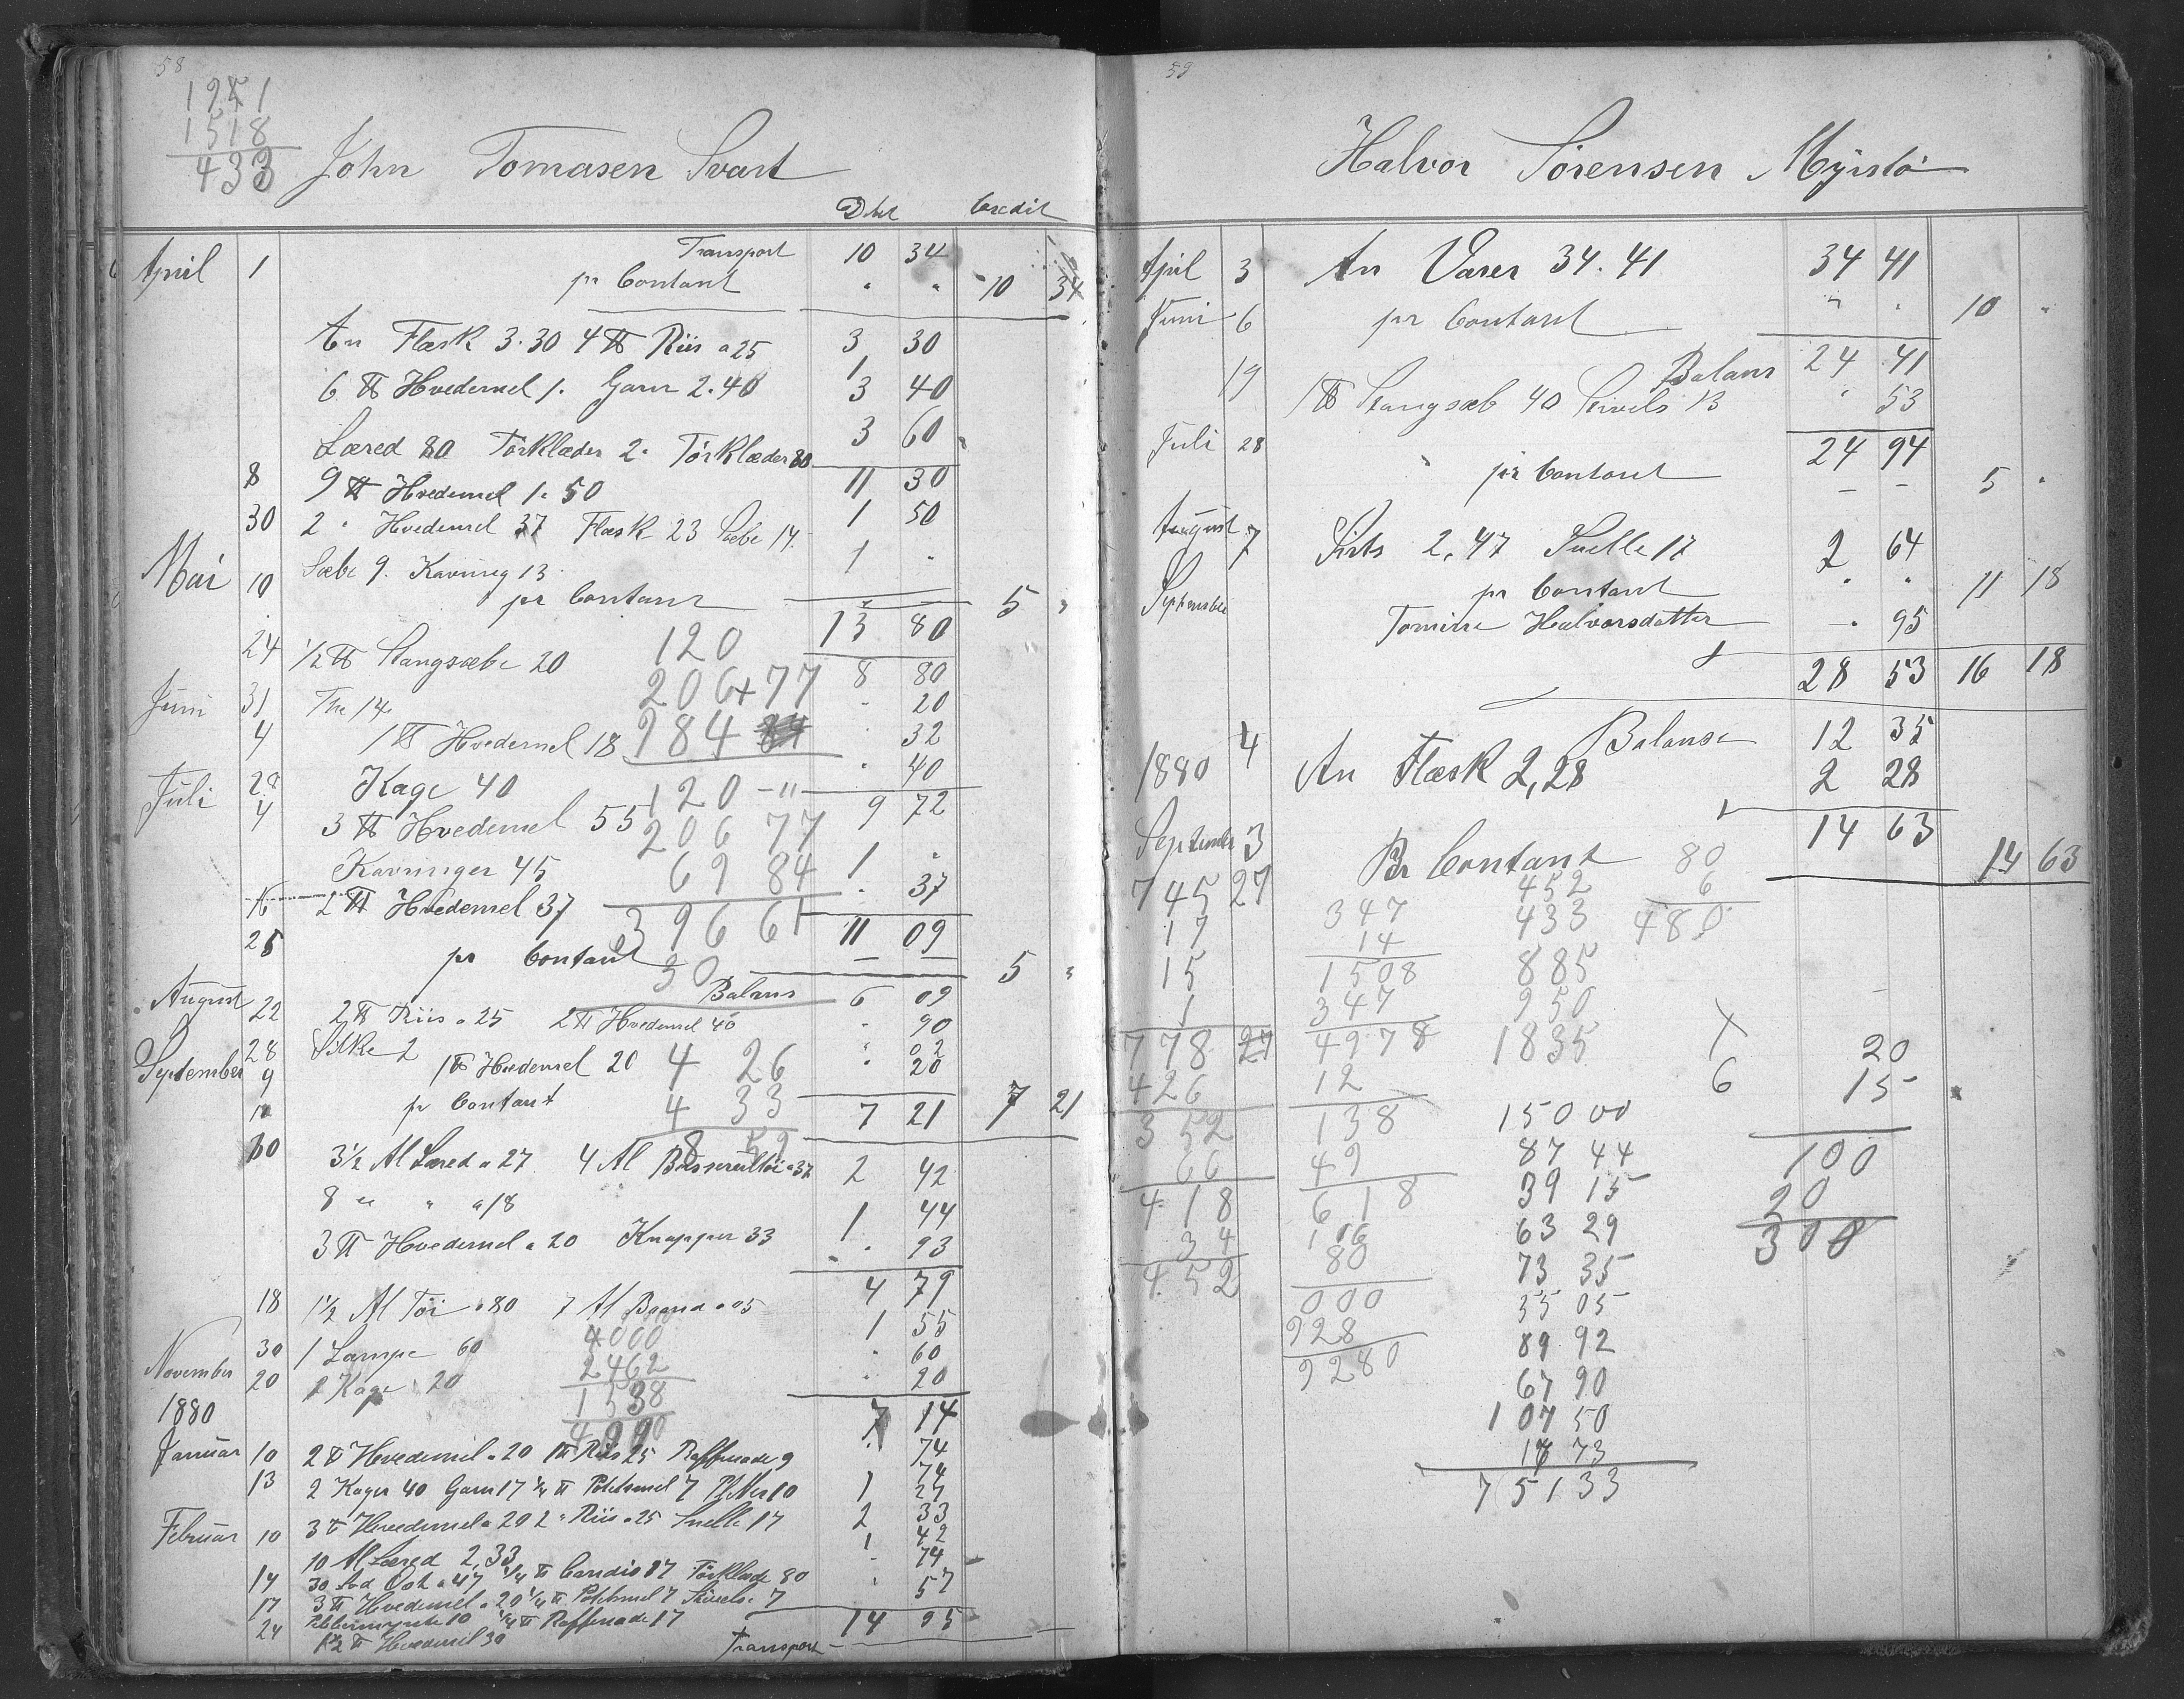 58
1951
1518
433
John Tomasen Svart
Debet Credit
April 1 Transport 10 34
pr Contant " " 10 34
An Flæsk 3.30 4 ℔ Riis a 25 3 30
1
6 ℔ Hvedemel 1. Garn 2.40 3 40
Læred 80 Törklæder 2. Törklæder 80 3 60
8 9 ℔ Hvedemel 1.50 11 30
30 2 " Hvedemel 37 Flæsk 23 Sæbe 14 1 50
Sæbe 9. Kavring 13 1 "
Mai 10 pr Contant 5 "
13 80
120
24 1/2 ℔ Stangsæbe 20 8 80
206+77
Juni 31 The 14 " 20
4 1 ℔ Hvedemel 18 " 32
984
Kage 40 " 40
120 - "
Juli 4 3 ℔ Hvedemel 55 9 72
206 77
Kavringer 45 1 "
69 84
16 2 ℔ Hvedemel 37 " 37
396 61
25 11 09
pr Contant — — 5 "
30
Balans 6 09
August 22 2 ℔ Riis a 25 2 ℔ Hvedemel 40 " 90
28 Silke 2 " 02
September 9 1 ℔ Hvedemel 20 " 20
4 26
pr Contant 7 21 7 21
4 33
8 59
30 3 1/2 Al Læred a 27 4 Al a 37 2 42
8 " " a 18 1 44
3 ℔ Hvedemel a 20 Knapper 33 " 93
4 79
18 1 1/2 Al Töi a 80 7 Al Baand a 05 1 55
4000
30 1 Lampe 60 " 60
2462
November 20 1 Kage 20 " 20
1538
1880 7 14
Januar 10 2 ℔ Hvedemel a 20 1 ℔ Riis 25 Raffenade 9 " 74
74
13 2 Kager 40 Garn 17 1/4 ℔ Potetmel 7 10 1 27
Februar 10 3 ℔ Hvedemel a 20 2 " Riis a 25 Snelle 17 2 33
10 Al Læred 2,33 1 42
14 Ost a 47 1/4 ℔ Candis 17 Törklæde 80 " 74
17 3 ℔ Hvedemel a 20 1/4 ℔ Potetmel 7 Stivels. 7 " 57
24 Pebbermynte 10 1/4 ℔ Raffenade 17 14 95
1 1/2 ℔ Hvedemel 30
Transport
59
Halvor Sörensen Myrstö
April 3 An Varer 34.41 34 41
Juni 6 pr Contant " " 10 "
Balans 24 41
19 1 ℔ Stangsæb 40 Stivels 13 " 53
Juli 28 24 94
" pr Contant — — 5 "
August 7 Sirts 2,47 Snelle 17 2 64
September pr Contant " " 11 18
Tomine Halvorsdatter — " 95
28 53 16 18
Balanse 12 35
1880 4 An Flæsk 2,28 2 28
14 63
September 3 Pr Contant 14 63
80
745 27 452 6
347 433 480
17 14
15 1508 885
1 347 950
778 27 4978 1835 20
426 12 6 15
352 138 150 00
66 49 87 44 100
418 618 39 15 20
34 106 63 29 300
452 80 73 35
000 35 05
928 89 92
9280 67 90
107 50
17 73
751 33